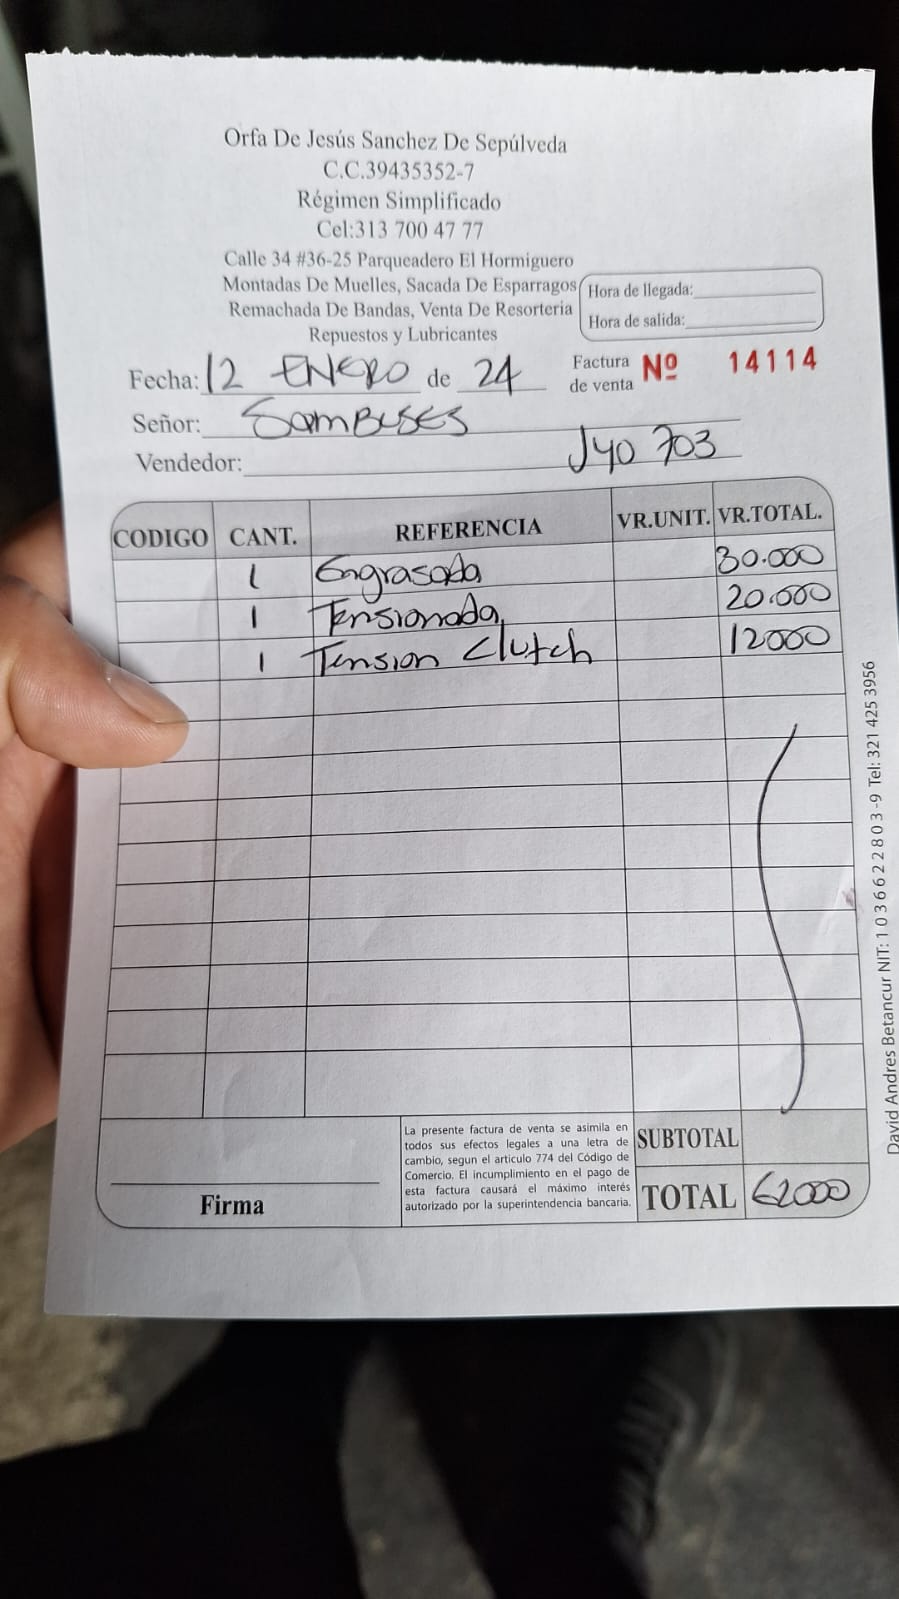 Orfa De Jesús Sanchez De Sepúlveda
C.C.39435352-7
Régimen Simplificado
Cel:313 700 47 77
Calle 34 #36-25 Parqueadero El Hormiguero
Montadas De Muelles, Sacada De Esparragos
Remachada De Bandas, Venta De Resorteria
Repuestos y Lubricantes
Hora de llegada:
Hora de salida:
Fecha: 12 ENERO de 24
Factura de venta Nº 14114
Señor: SamBUSES
Vendedor: JYO 703
CODIGO CANT. REFERENCIA VR.UNIT. VR.TOTAL.
1 Engrasada 30.000
1 Tensionada 20.000
1 Tension Clutch 12000
La presente factura de venta se asimila en
todos sus efectos legales a una letra de
cambio, segun el articulo 774 del Código de
Comercio. El incumplimiento en el pago de
esta factura causará el máximo interés
autorizado por la superintendencia bancaria.
SUBTOTAL
TOTAL 62000
Firma
David Andres Betancur NIT: 1036622803-9 Tel: 321 425 3956